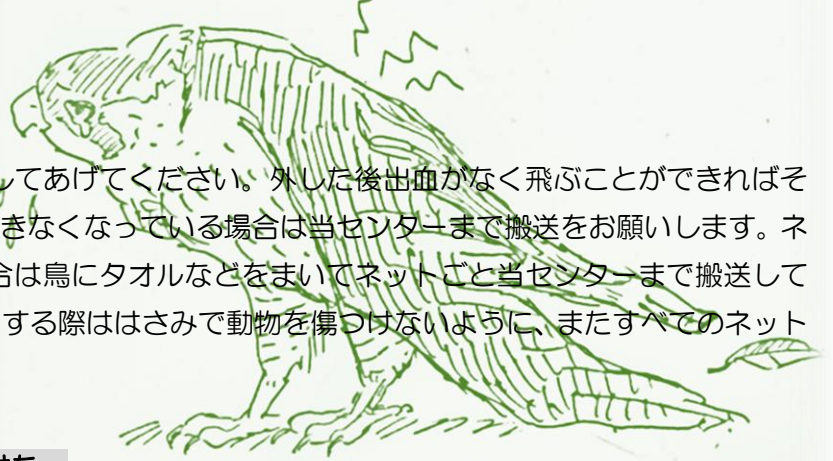 してあげてください。外した後出血がなく飛ぶことができればそ
きなくなっている場合は当センターまで搬送をお願いします。ネ
合は鳥にタオルなどをまいてネットごと当センターまで搬送して
する際ははさみで動物を傷つけないように、またすべてのネット